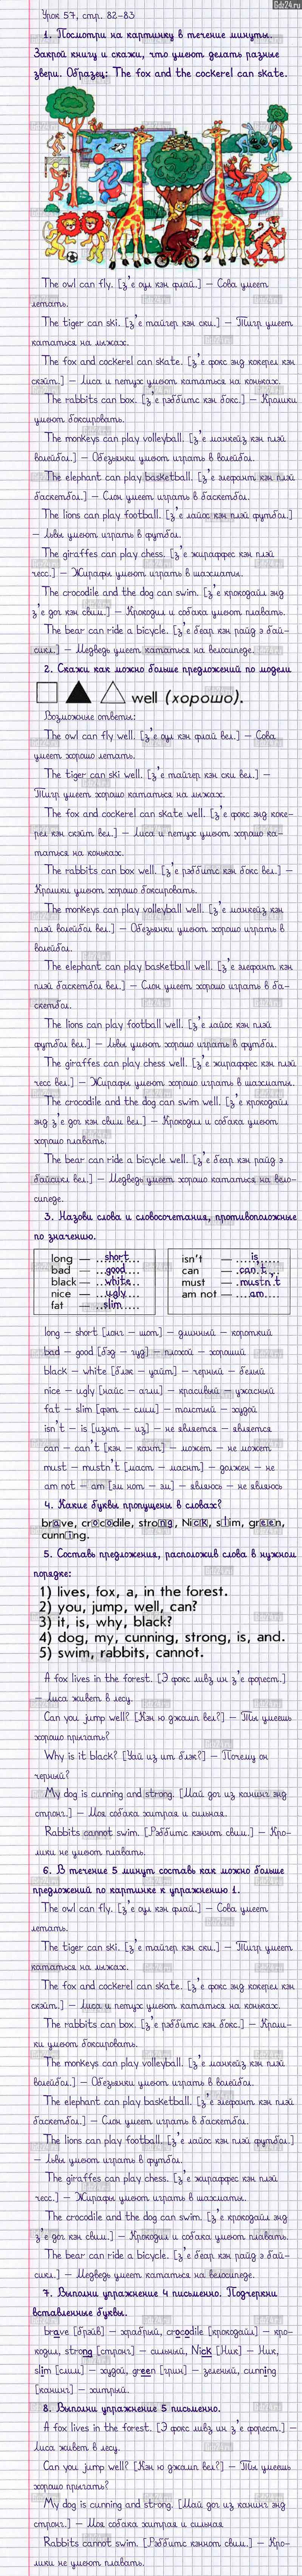 Gdz24.ru
Урок 57, стр. 82-83
1. Посмотри на картинку в течение минуты.
Закрой книгу и скажи, что умеют делать разные
звери. Образец: The fox and the cockerel can skate.
The owl can fly. [з'е оул кэн флай.] – Сова умеет
летать.
The tiger can ski. [з'е тайгер кэн ски.] – Тигр умеет
кататься на лыжах.
The fox and cockerel can skate. [з'е фокс энд кокерел кэн
скэйт.] – Лиса и петух умеют кататься на коньках.
The rabbits can box. [з'е рэббитс кэн бокс.] – Кролики
умеют боксировать.
The monkeys can play volleyball. [з'е манкейз кэн плэй
волейбол.] – Обезьянки умеют играть в волейбол.
The elephant can play basketball. [з'е элефант кэн плэй
баскетбол.] – Слон умеет играть в баскетбол.
The lions can play football. [з'е лайос кэн плэй футбол.]
– Львы умеют играть в футбол.
The giraffes can play chess. [з'е жираффес кэн плэй
чесс.] – Жирафы умеют играть в шахматы.
The crocodile and the dog can swim. [з'е крокодайл энд
з'е дог кэн свим.] – Крокодил и собака умеют плавать.
The bear can ride a bicycle. [з'е беар кэн райд э бай-
сикл.] – Медведь умеет кататься на велосипеде.
2. Скажи как можно больше предложений по модели
well (хорошо).
Возможные ответы:
The owl can fly well. [з'е оул кэн флай вел.] – Сова
умеет хорошо летать.
The tiger can ski well. [з'е тайгер кэн ски вел.] –
Тигр умеет хорошо кататься на лыжах.
The fox and cockerel can skate well. [з'е фокс энд коке-
рел кэн скэйт вел.] – Лиса и петух умеют хорошо ка-
таться на коньках.
The rabbits can box well. [з'е рэббитс кэн бокс вел.] –
Кролики умеют хорошо боксировать.
The monkeys can play volleyball well. [з'е манкейз кэн
плэй волейбол вел.] – Обезьянки умеют хорошо играть в
волейбол.
The elephant can play basketball well. [з'е элефант кэн
плэй баскетбол вел.] – Слон умеет хорошо играть в ба-
скетбол.
The lions can play football well. [з'е лайос кэн плэй
футбол вел.] – Львы умеют хорошо играть в футбол.
The giraffes can play chess well. [з'е жираффес кэн плэй
чесс вел.] – Жирафы умеют хорошо играть в шахматы.
The crocodile and the dog can swim well. [з'е крокодайл
энд з'е дог кэн свим вел.] – Крокодил и собака умеют
хорошо плавать.
The bear can ride a bicycle well. [з'е беар кэн райд э
байсикл вел.] – Медведь умеет хорошо кататься на вело-
сипеде.
3. Назови слова и словосочетания, противоположные
по значению.
long – short
bad – good
black – white
nice – ugly
fat – slim
isn't – is
can – can't
must – mustn't
am not – am
long – short [лонг – шот] – длинный – короткий
bad – good [бэд – гуд] – плохой – хороший
black – white [блэк – уайт] – черный – белый
nice – ugly [найс – агли] – красивый – ужасный
fat – slim [фэт – слим] – толстый – худой
isn't – is [изнт – из] – не является – является
can – can't [кэн – кант] – может – не может
must – mustn't [маст – маснт] – должен – не
am not – am [эм нот – эм] – являюсь – не являюсь
4. Какие буквы пропущены в словах?
brave, crocodile, strong, Nick, slim, green,
cunning.
5. Составь предложения, расположив слова в нужном
порядке:
1) lives, fox, a, in the forest.
2) you, jump, well, can?
3) it, is, why, black?
4) dog, my, cunning, strong, is, and.
5) swim, rabbits, cannot.
A fox lives in the forest. [Э фокс ливз ин з'е форест.]
– Лиса живет в лесу.
Can you jump well? [Кэн ю джамп вел?] – Ты умеешь
хорошо прыгать?
Why is it black? [Уай из ит блэк?] – Почему он
черный?
My dog is cunning and strong. [Май дог из канинг энд
стронг.] – Моя собака хитрая и сильная.
Rabbits cannot swim. [Рэббитс кэннот свим.] – Кро-
лики не умеют плавать.
6. В течение 5 минут составь как можно больше
предложений по картинке к упражнению 1.
The owl can fly. [з'е оул кэн флай.] – Сова умеет
летать.
The tiger can ski. [з'е тайгер кэн ски.] – Тигр умеет
кататься на лыжах.
The fox and cockerel can skate. [з'е фокс энд кокерел кэн
скэйт.] – Лиса и петух умеют кататься на коньках.
The rabbits can box. [з'е рэббитс кэн бокс.] – Кроли-
ки умеют боксировать.
The monkeys can play volleyball. [з'е манкейз кэн плэй
волейбол.] – Обезьянки умеют играть в волейбол.
The elephant can play basketball. [з'е элефант кэн плэй
баскетбол.] – Слон умеет играть в баскетбол.
The lions can play football. [з'е лайос кэн плэй футбол.]
– Львы умеют играть в футбол.
The giraffes can play chess. [з'е жираффес кэн плэй
чесс.] – Жирафы умеют играть в шахматы.
The crocodile and the dog can swim. [з'е крокодайл энд
з'е дог кэн свим.] – Крокодил и собака умеют плавать.
The bear can ride a bicycle. [з'е беар кэн райд э бай-
сикл.] – Медведь умеет кататься на велосипеде.
7. Выполни упражнение 4 письменно. Подчеркни
вставленные буквы.
brave [брэйв] – храбрый, crocodile [крокодайл] – кро-
кодил, strong [стронг] – сильный, Nick [Ник] – Ник,
slim [слим] – худой, green [грин] – зеленый, cunning
[канинг] – хитрый.
8. Выполни упражнение 5 письменно.
A fox lives in the forest. [Э фокс ливз ин з'е форест.] –
Лиса живет в лесу.
Can you jump well? [Кэн ю джамп вел?] – Ты умеешь
хорошо прыгать?
My dog is cunning and strong. [Май дог из канинг энд
стронг.] – Моя собака хитрая и сильная
Rabbits cannot swim. [Рэббитс кэннот свим.] – Кро-
лики не умеют плавать.